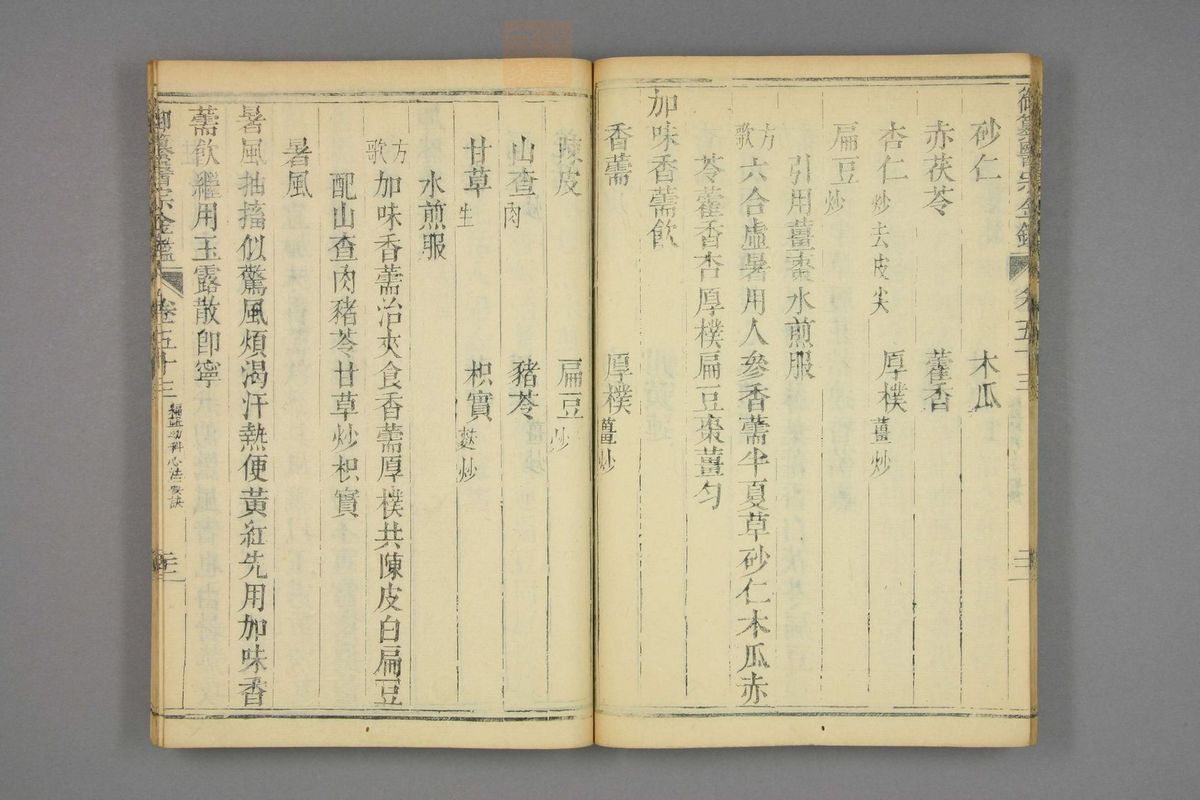 御纂醫宗金鑑 卷五十三
砂仁 木瓜
赤茯苓 藿香
杏仁 炒去皮尖 厚樸 薑炒
扁豆 炒
引用薑棗水煎服
方歌 六合虛暑用人參香薷半夏草砂仁木瓜赤
苓藿香杏厚樸扁豆棗薑勻
加味香薷飲
香薷 厚樸 薑炒
陳皮 扁豆 炒
山查 肉 豬苓
甘草 生 枳實 麩炒
水煎服
方歌 加味香薷治夾食香薷厚樸共陳皮白扁豆
配山查肉豬苓甘草炒枳實
暑風
暑風抽搐似驚風煩渴汗熱便黃紅先用加味香
薷飲繼用玉露散卽寧
御纂醫宗金鑑 卷五十三 編輯幼科心法要訣